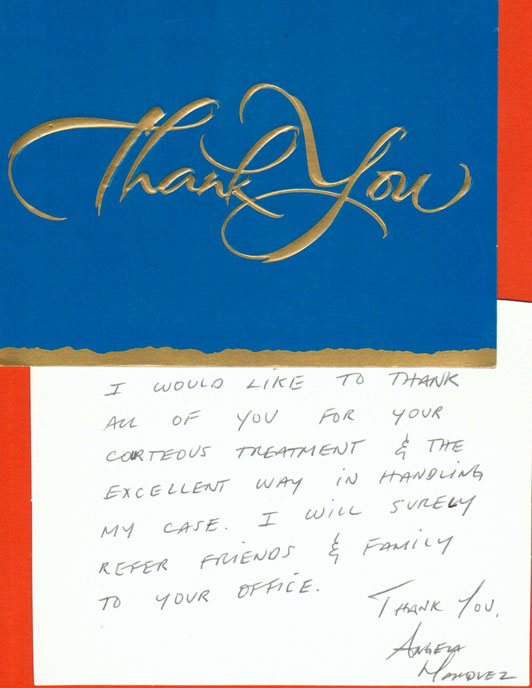 Thank You
I WOULD LIKE TO THANK
ALL OF YOU FOR YOUR
CORTEOUS TREATMENT & THE
EXCELLENT WAY IN HANDLING
MY CASE. I WILL SURELY
REFER FRIENDS & FAMILY
TO YOUR OFFICE.
THANK YOU,
ANGELA